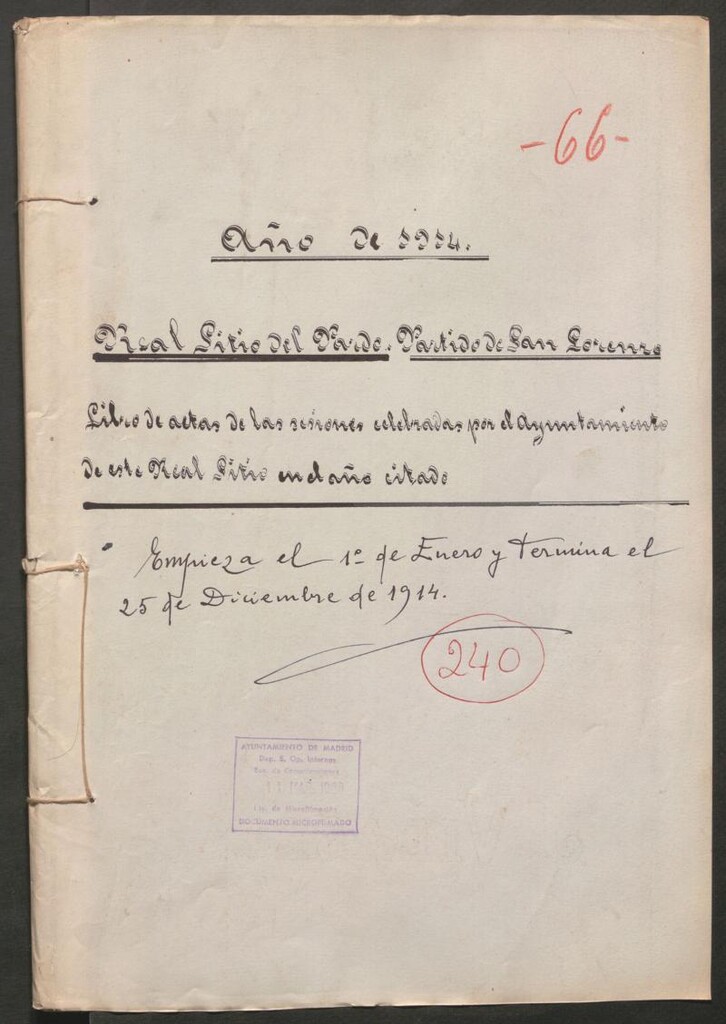 -66-
Año de 1914.
Real Sitio del Pardo. Partido de San Lorenzo
Libro de actas de las sesiones celebradas por el Ayuntamiento
de este Real Sitio en el año citado
Empieza el 1º de Enero y termina el
25 de Diciembre de 1914.
240
AYUNTAMIENTO DE MADRID
Dep. S. Op. Internos
11 MAR
DOCUMENTO MICROFILMADO